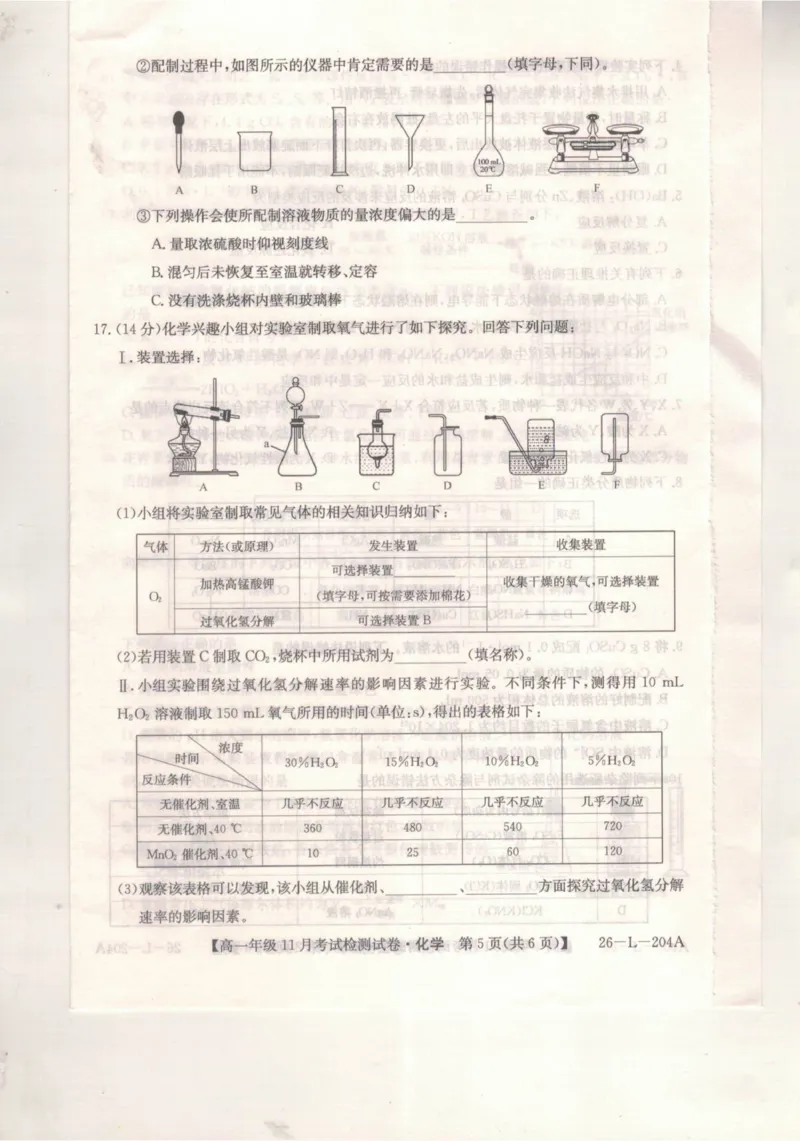 ②配制过程中,如图所示的仪器中肯定需要的是________(填字母,下同)。
100 mL
20℃
A B C D E F
③下列操作会使所配制溶液物质的量浓度偏大的是________。
A. 量取浓硫酸时仰视刻度线
B. 混匀后未恢复至室温就转移、定容
C. 没有洗涤烧杯内壁和玻璃棒
17.(14分)化学兴趣小组对实验室制取氧气进行了如下探究。回答下列问题:
Ⅰ.装置选择:
a
A B C D E F
(1)小组将实验室制取常见气体的相关知识归纳如下:
气体 方法(或原理) 发生装置 收集装置
O₂ 加热高锰酸钾 可选择装置________(填字母,可按需要添加棉花) 收集干燥的氧气,可选择装置________(填字母)
过氧化氢分解 可选择装置B
(2)若用装置C制取CO₂,烧杯中所用试剂为________(填名称)。
Ⅱ.小组实验围绕过氧化氢分解速率的影响因素进行实验。不同条件下,测得用10 mL
H₂O₂溶液制取150 mL氧气所用的时间(单位:s),得出的表格如下:
浓度
时间
反应条件
30%H₂O₂ 15%H₂O₂ 10%H₂O₂ 5%H₂O₂
无催化剂、室温 几乎不反应 几乎不反应 几乎不反应 几乎不反应
无催化剂、40 ℃ 360 480 540 720
MnO₂催化剂、40 ℃ 10 25 60 120
(3)观察该表格可以发现,该小组从催化剂、________、________方面探究过氧化氢分解
速率的影响因素。
【高一年级11月考试检测试卷·化学 第5页(共6页)】 26-L-204A